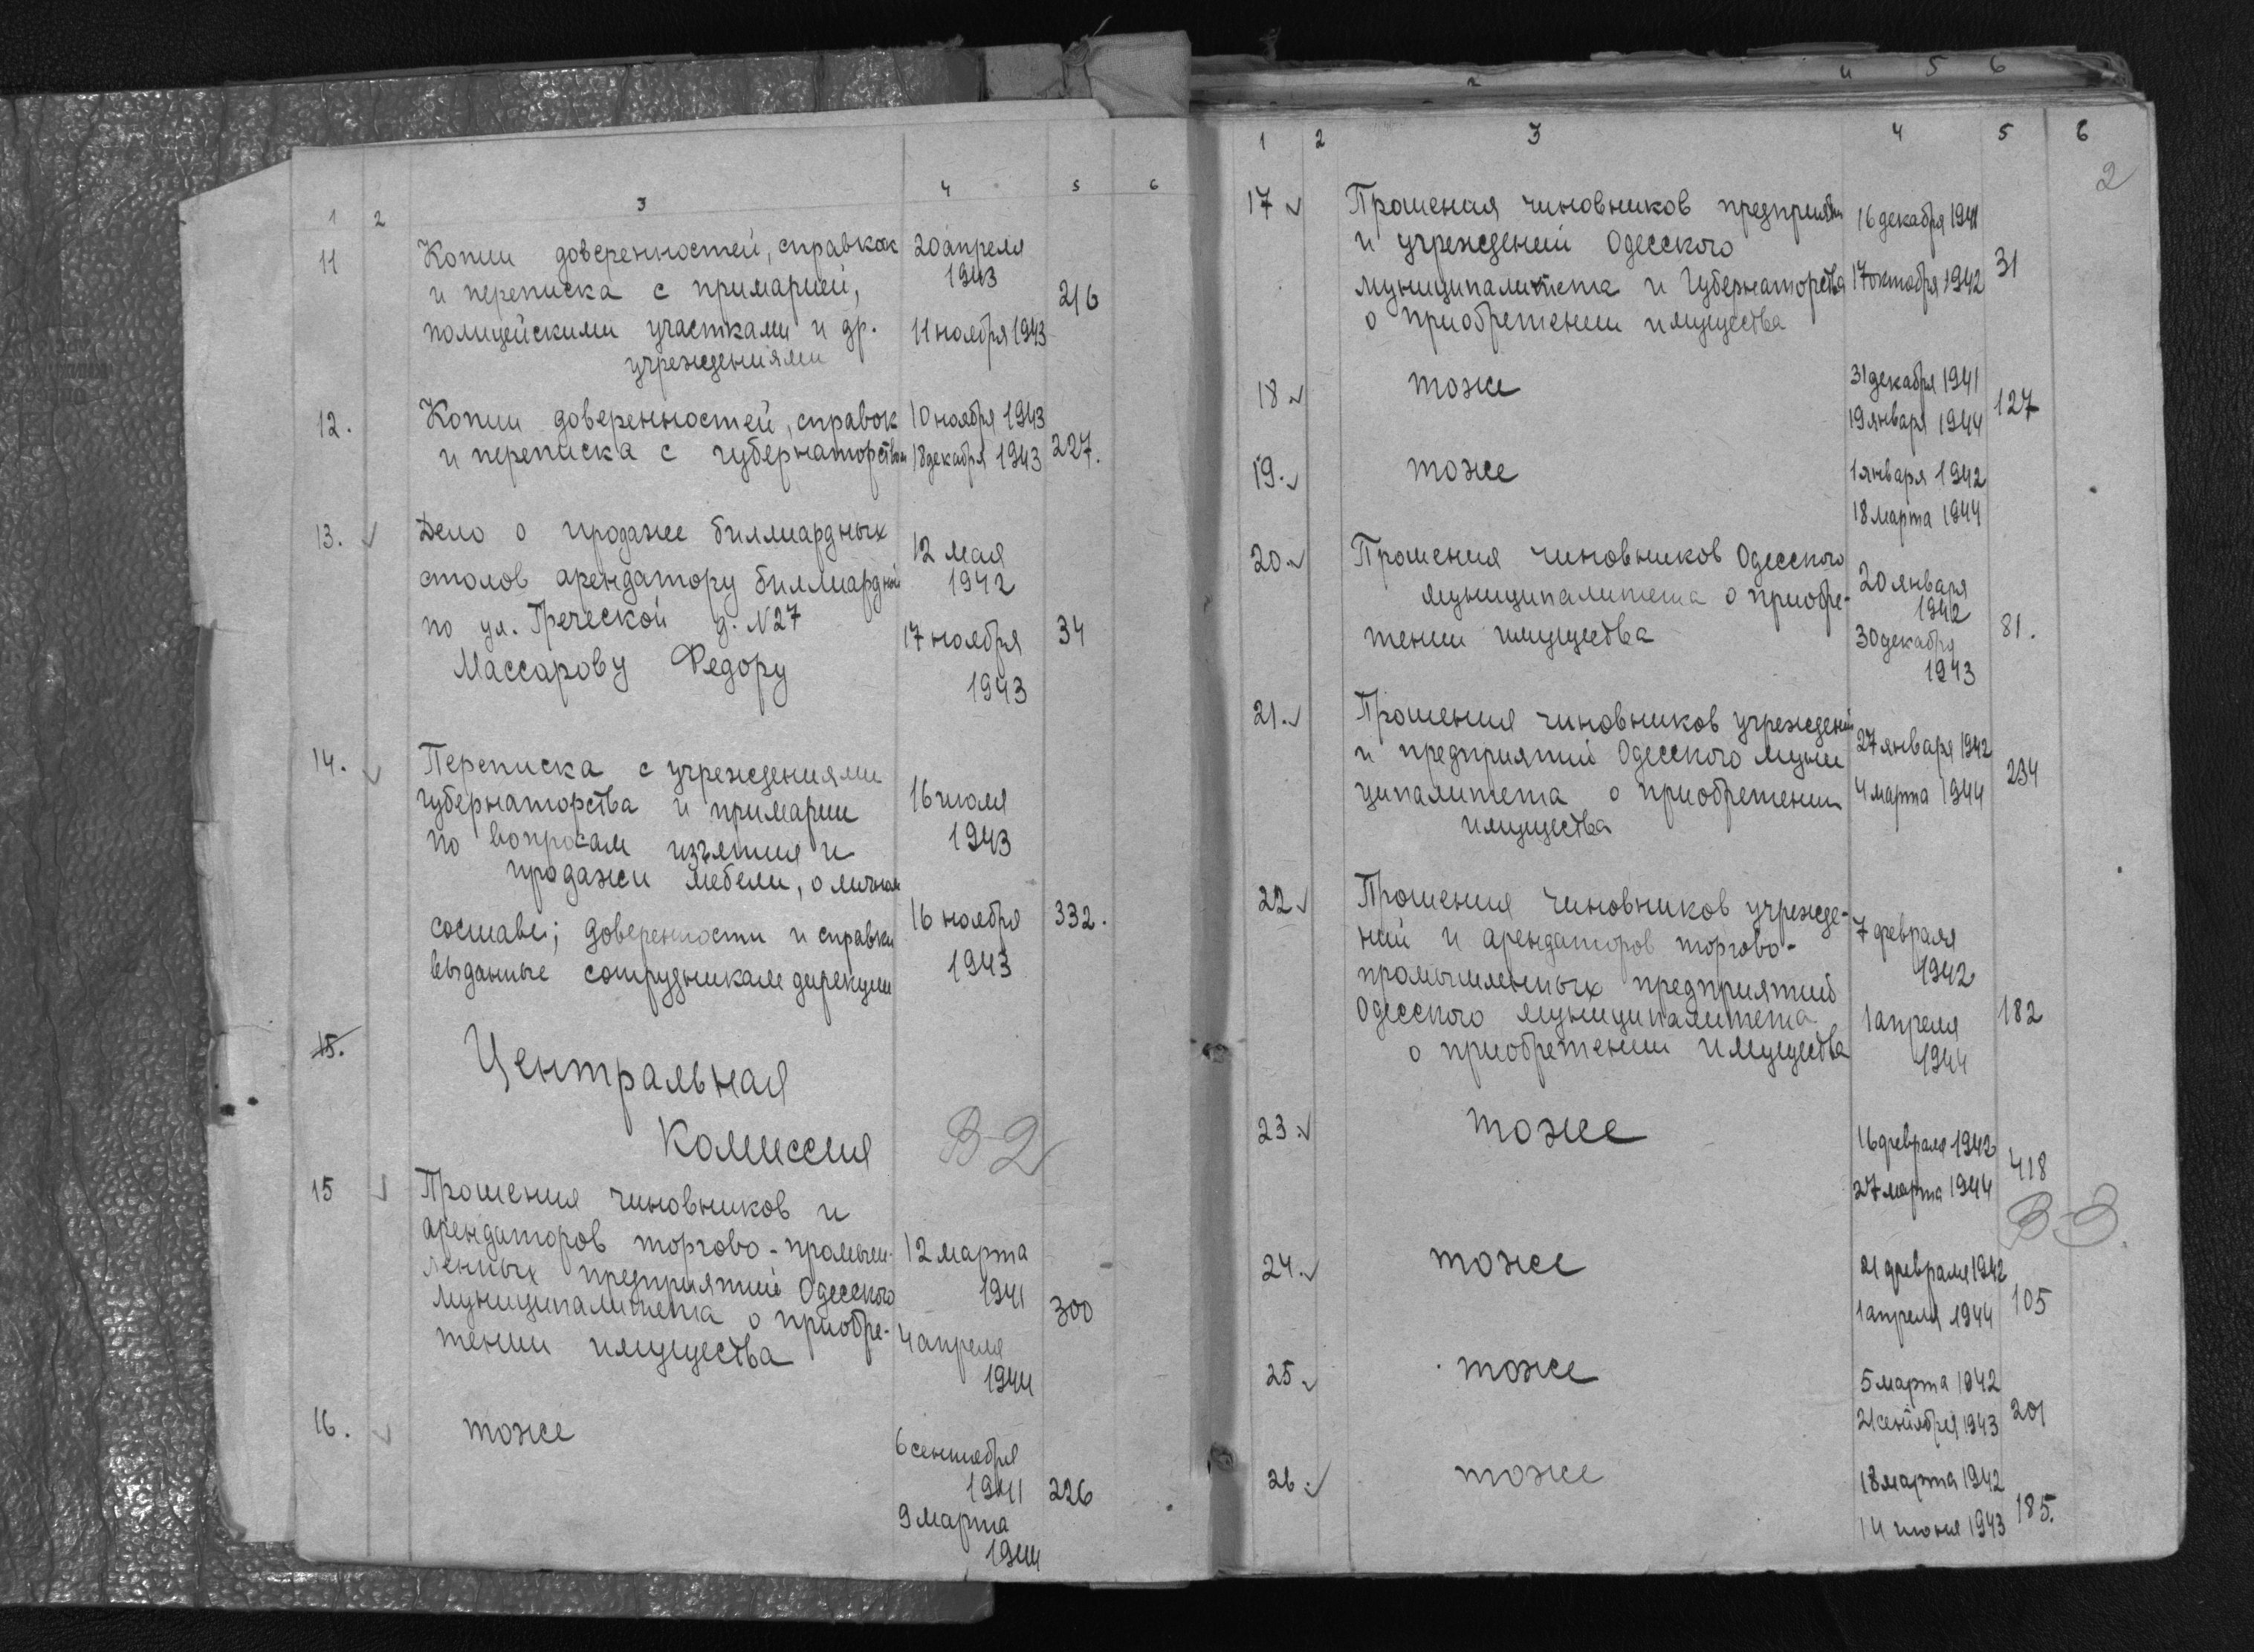 1 2 3 4 5 6
11 Копии доверенностей, справкок 20 апреля
и переписка с примарией, 1943
полицейскими участками и др. 11 ноября 1943 216
учреждениями
12. Копии доверенностей, справок 10 ноября 1943
и переписка с губернаторством 18 декабря 1943 227.
13. Дело о продаже биллиардных 12 мая
столов арендатору биллиардной 1942
по ул. Греческой д. N27 17 ноября 34
Массарову Федору 1943
14. Переписка с учреждениями
губернаторства и примарии 16 июля
по вопросам изъятия и 1943
продажи мебели, о личном
составе; доверенности и справки 16 ноября 332.
выданные сотрудникам дирекции 1943
15.
Центральная
Комиссия В-2
15 Прошения чиновников и
арендаторов торгово-промыш- 12 марта
ленных предприятий Одесского 1941
муниципалитета о приобре- 4 апреля 300
тении имущества 1944
16. тоже 6 сентября
1941 226
9 марта
1944
4 5 6
1 2 3 4 5 6
2
17 Прошения чиновников предприятий 16 декабря 1941
и учреждений Одесского
муниципалитета и Губернаторства 17 октября 1942 31
о приобретении имущества
18 тоже 31 декабря 1941
19 января 1944 127
19. тоже 1 января 1942
18 марта 1944
20. Прошения чиновников Одесского 20 января
муниципалитета о приобре- 1942
тении имущества 30 декабря 81.
1943
21. Прошения чиновников учреждений
и предприятий Одесского муни 27 января 1942
ципалитета о приобретении 4 марта 1944 234
имущества
22 Прошения чиновников учрежде-
ний и арендаторов торгово- 7 февраля
промышленных предприятий 1942
Одесского муниципалитета 1 апреля 182
о приобретении имущества 1944
23. тоже 16 февраля 1942
27 марта 1944 418
В-3.
24. тоже 21 февраля 1942
1 апреля 1944 105
25 тоже 5 марта 1942
21 сентября 1943 201
26. тоже 18 марта 1942
14 июня 1943 185.